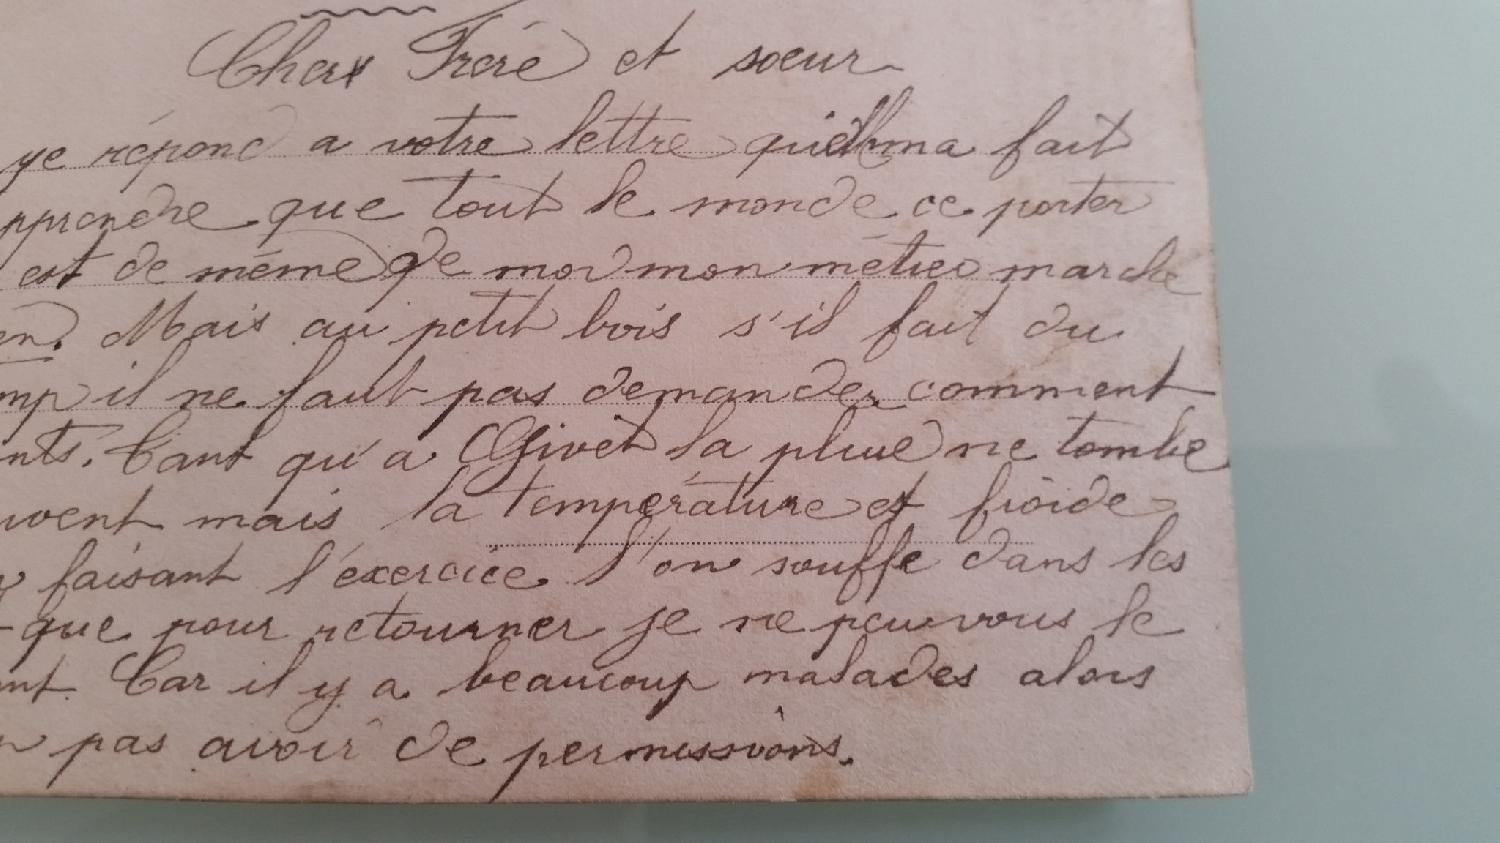 Cherx Frére et sœur
ye répond a votre lettre qui ma fait
pprendre que tout le monde ce porter
est de même de moi mon métier marche
en. Mais au petit bois s'il fait du
mp il ne faut pas demander comment
nts. Tant qu'a Givet la pluie ne tombe
uvent mais la température et froide
faisant l'éxercice l'on souffe dans les
que pour retourner je ne peu vous le
nt. Car il y a beaucoup malades alors
pas avoir de permissions.